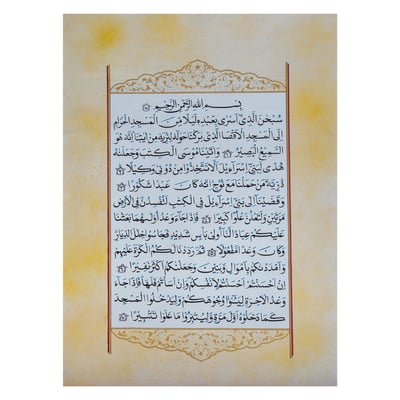 بِسْمِ اللَّهِ الرَّحْمَنِ الرَّحِيمِ
سُبْحَٰنَ الَّذِي أَسْرَىٰ بِعَبْدِهِ لَيْلًا مِنَ الْمَسْجِدِ الْحَرَامِ
إِلَى الْمَسْجِدِ الْأَقْصَا الَّذِي بَٰرَكْنَا حَوْلَهُ لِنُرِيَهُ مِنْ آيَٰتِنَا إِنَّهُ هُوَ
السَّمِيعُ الْبَصِيرُ وَآتَيْنَا مُوسَى الْكِتَٰبَ وَجَعَلْنَٰهُ
هُدًى لِبَنِي إِسْرَاءِيلَ أَلَّا تَتَّخِذُوا مِنْ دُونِي وَكِيلًا
ذُرِّيَّةَ مَنْ حَمَلْنَا مَعَ نُوحٍ إِنَّهُ كَانَ عَبْدًا شَكُورًا
وَقَضَيْنَا إِلَىٰ بَنِي إِسْرَاءِيلَ فِي الْكِتَٰبِ لَتُفْسِدُنَّ فِي الْأَرْضِ
مَرَّتَيْنِ وَلَتَعْلُنَّ عُلُوًّا كَبِيرًا فَإِذَا جَاءَ وَعْدُ أُولَىٰهُمَا بَعَثْنَا
عَلَيْكُمْ عِبَادًا لَنَا أُولِي بَأْسٍ شَدِيدٍ فَجَاسُوا خِلَٰلَ الدِّيَارِ
وَكَانَ وَعْدًا مَفْعُولًا ثُمَّ رَدَدْنَا لَكُمُ الْكَرَّةَ عَلَيْهِمْ
وَأَمْدَدْنَٰكُمْ بِأَمْوَٰلٍ وَبَنِينَ وَجَعَلْنَٰكُمْ أَكْثَرَ نَفِيرًا
إِنْ أَحْسَنْتُمْ أَحْسَنْتُمْ لِأَنْفُسِكُمْ وَإِنْ أَسَأْتُمْ فَلَهَا فَإِذَا جَاءَ
وَعْدُ الْآخِرَةِ لِيَسُءُوا وُجُوهَكُمْ وَلِيَدْخُلُوا الْمَسْجِدَ
كَمَا دَخَلُوهُ أَوَّلَ مَرَّةٍ وَلِيُتَبِّرُوا مَا عَلَوْا تَتْبِيرًا